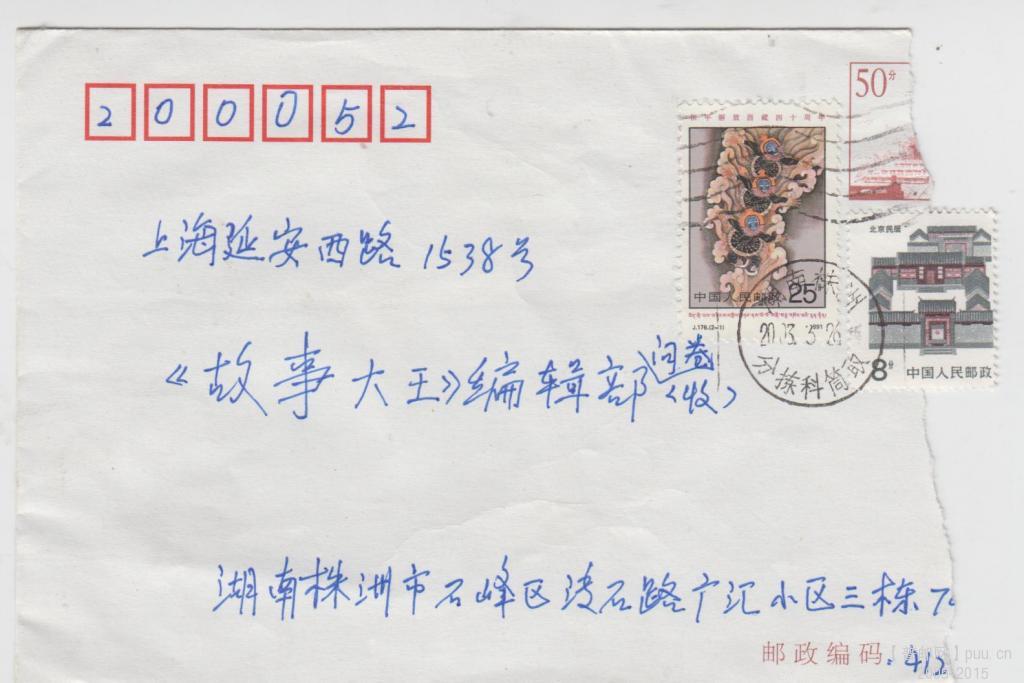 200052
50分
和平解放西藏四十周年
中国人民邮政 25
J.176.(2-1) 1991
北京民居
8分 中国人民邮政
湖南株洲
2003.3.26
分拣科筒取
上海延安西路1538号
《故事大王》编辑部问卷(收)
湖南株洲市石峰区凌石路广汇小区三栋
邮政编码 412
puu.cn
2005-2015